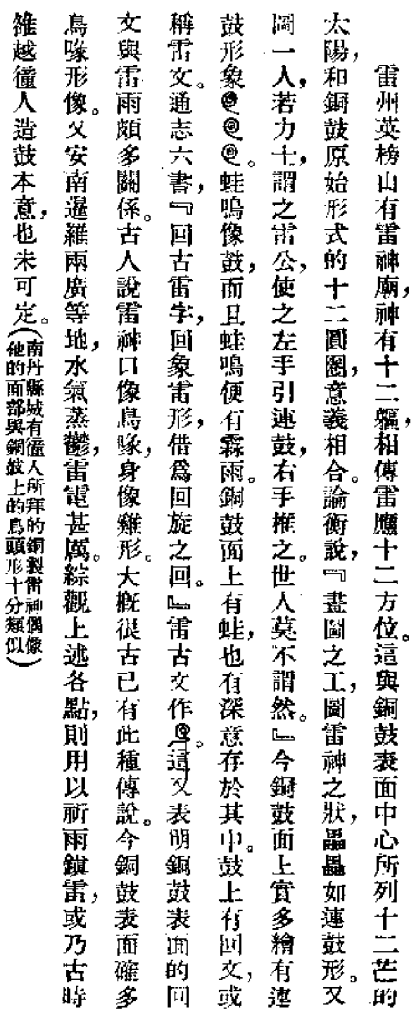 雷州英榜山有雷神廟，神有十二軀，相傳雷應十二方位。這與銅鼓表面中心所列十二芒的
太陽，和銅鼓原始形式的十二圓圈，意義相合。論衡說，『畫圖之工，圖雷神之狀，纍纍如連鼓形。又
圖一人，若力士，謂之雷公，使之左手引連鼓，右手推之。世人莫不謂然。』今銅鼓面上實多繪有連
鼓形象。蛙鳴像鼓，而且蛙鳴便有霖雨。銅鼓面上有蛙，也有深意存於其中。鼓上有回文，或
稱雷文。通志六書，『回古雷字，回象雷形，借爲回旋之回。』雷古文作。這又表明銅鼓表面的回
文與雷雨頗多關係。古人說雷神口像鳥喙，身像雞形。大概很古已有此種傳說。今銅鼓表面確多
鳥喙形像。又安南暹羅兩廣等地，水氣蒸鬱，雷電甚厲。綜觀上述各點，則用以祈雨鎮雷，或乃古時
雒越僮人造鼓本意，也未可定。
（南丹縣城有僮人所拜的銅製雷神偶像
他的面部與銅鼓上的鳥頭形十分類似）